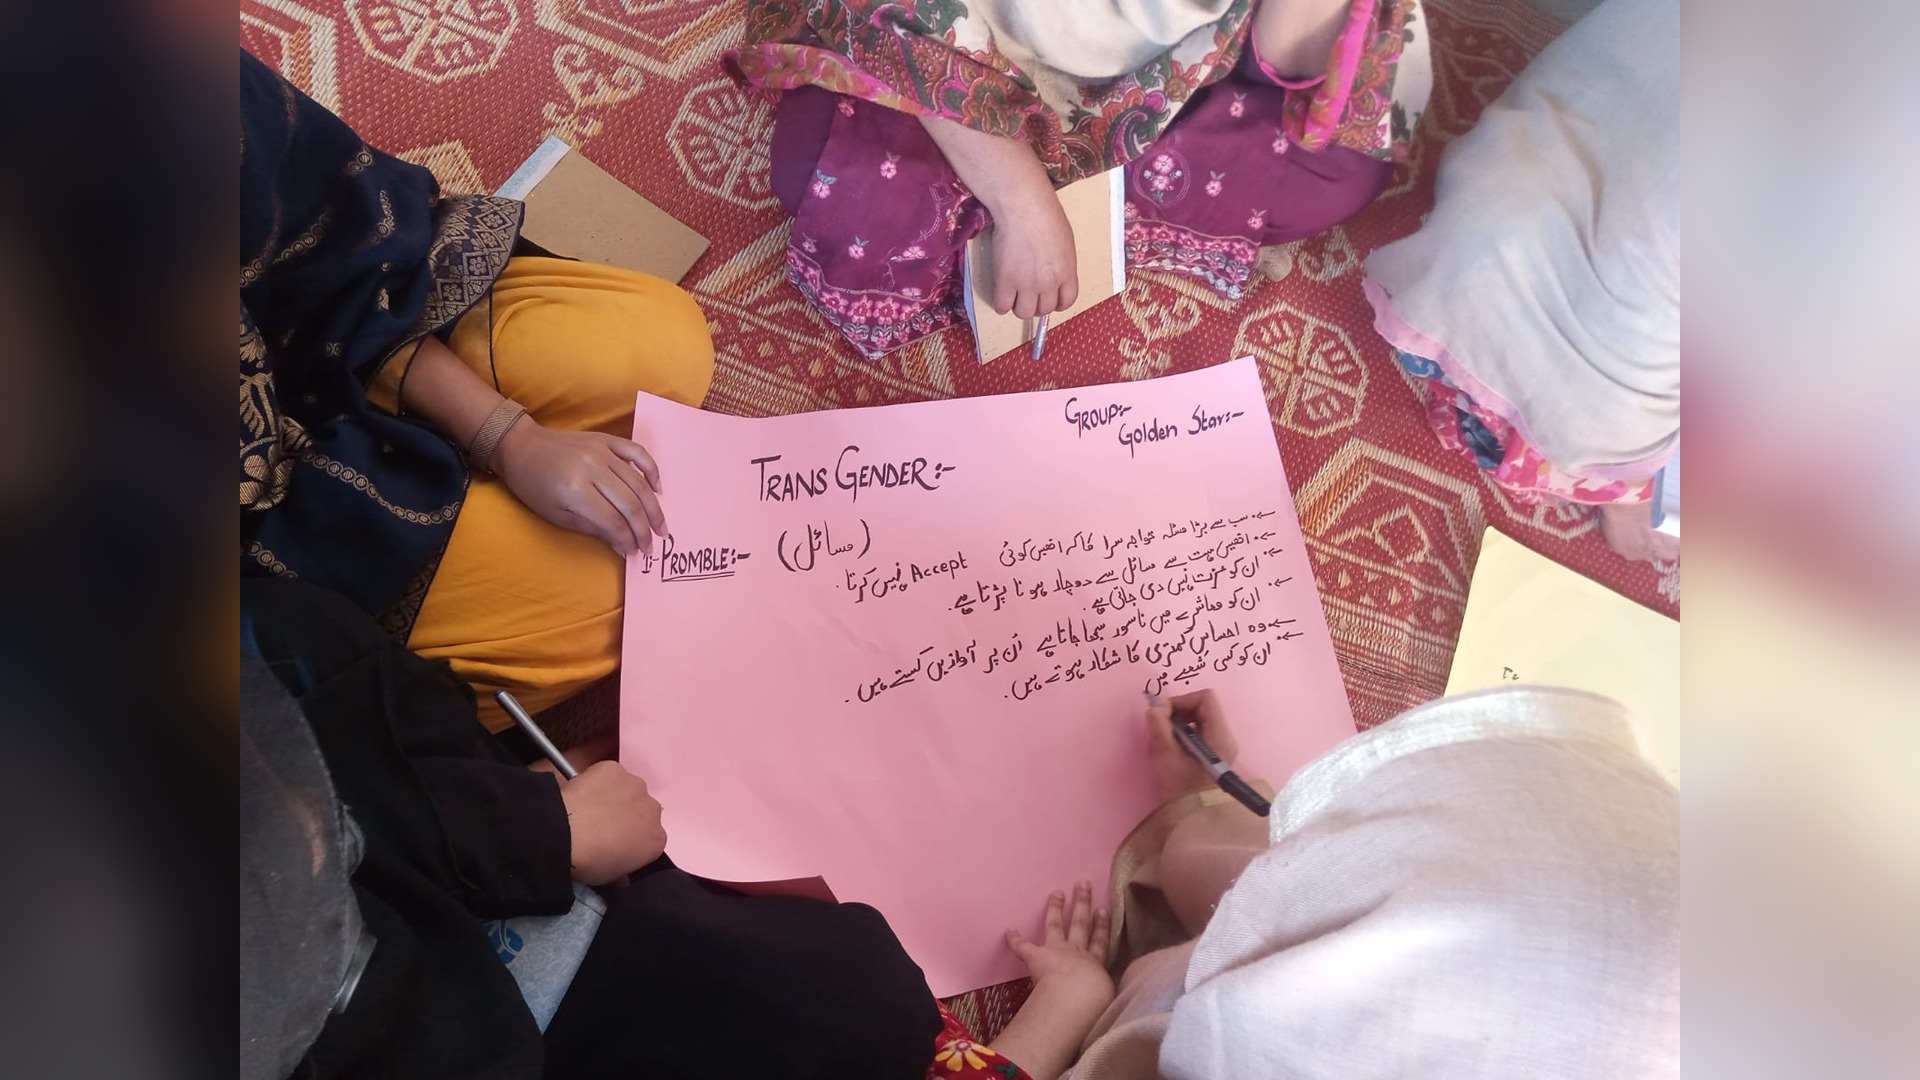 GROUP:-
Golden Star:-
TRANS GENDER:-
1:- PROMBLE:- (مسائل)
←. سب سے بڑا مسئلہ خواجہ سرا کا کہ انھیں کوئی Accept نہیں کرتا.
←. انھیں بہت سے مسائل سے دوچار ہونا پڑتا ہے.
←. ان کو عزت نہیں دی جاتی ہے.
←. ان کو معاشرے میں ناسور سمجھا جاتا ہے اُن پر آوازیں کستے ہیں.
←. وہ احساسِ کمتری کا شکار ہوتے ہیں.
←. ان کو کسی شعبے میں